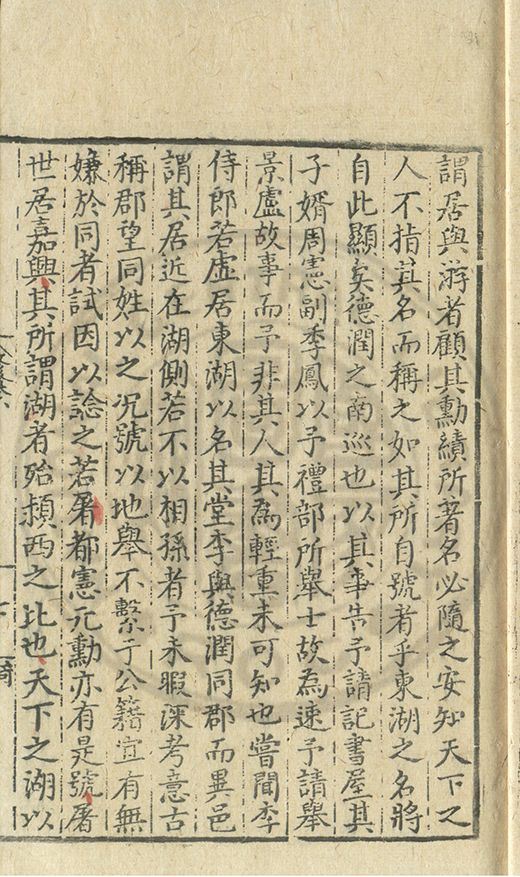 謂居與游者顧其勳績所著名必隨之安知天下之
人不指其名而稱之如其所自號者乎東湖之名將
自此顯矣德潤之南巡也以其事告予請記書屋其
子婿周憲副季鳳以予禮部所舉士故為速予請舉
景盧故事而予非其人其為輕重未可知也嘗聞李
侍郎若虛居東湖以名其堂李與德潤同郡而異邑
謂其居近在湖側若不以相孫者予未暇深考意古
稱郡望同姓以之況號以地舉不繫于公籍宜有無
嫌於同者試因以諗之若屠都憲元勳亦有是號屠
世居嘉興其所謂湖者殆潁西之比也天下之湖以